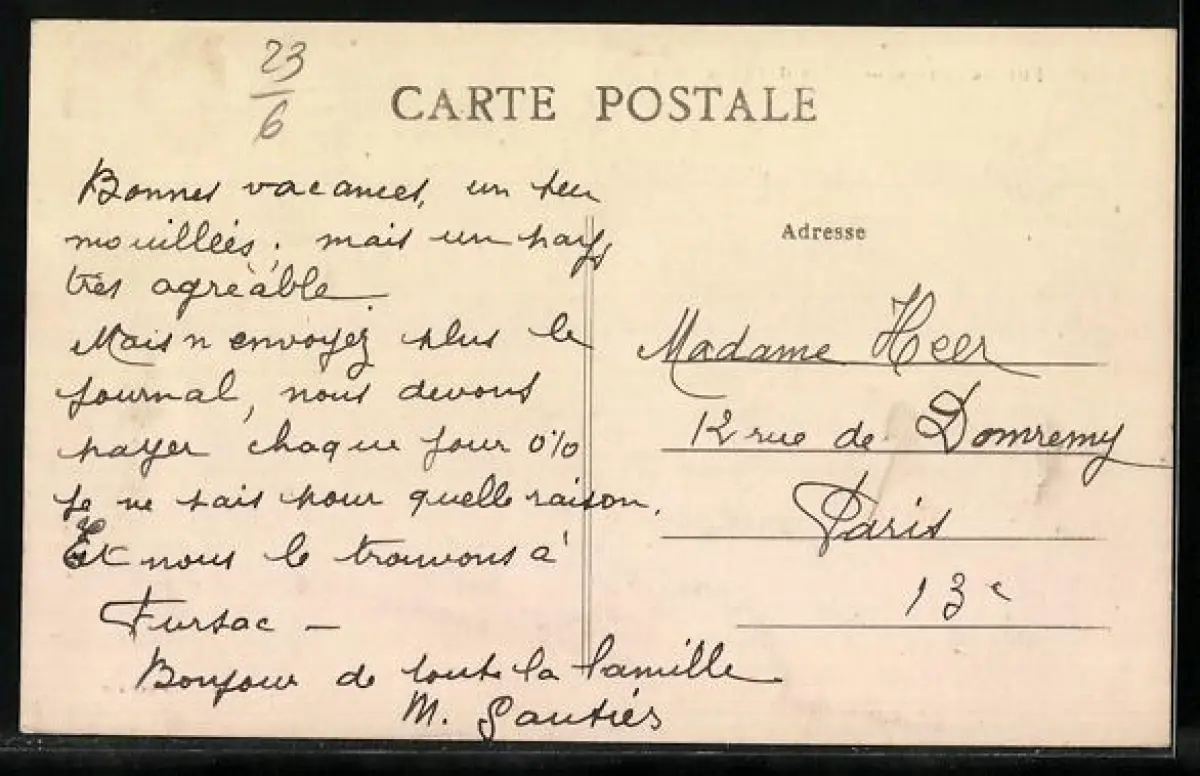 23
6
CARTE POSTALE
Bonnes vacances, un peu
mouillées, mais un pays
très agréable.
Mais n'envoyez plus le
journal, nous devons
payer chaque jour 0%
je ne sais pour quelle raison.
Et nous le trouvons à
Fursac —
Bonjour de toute la famille
M. Gautiés
Adresse
Madame Heer
12 rue de Domremy
Paris
13e